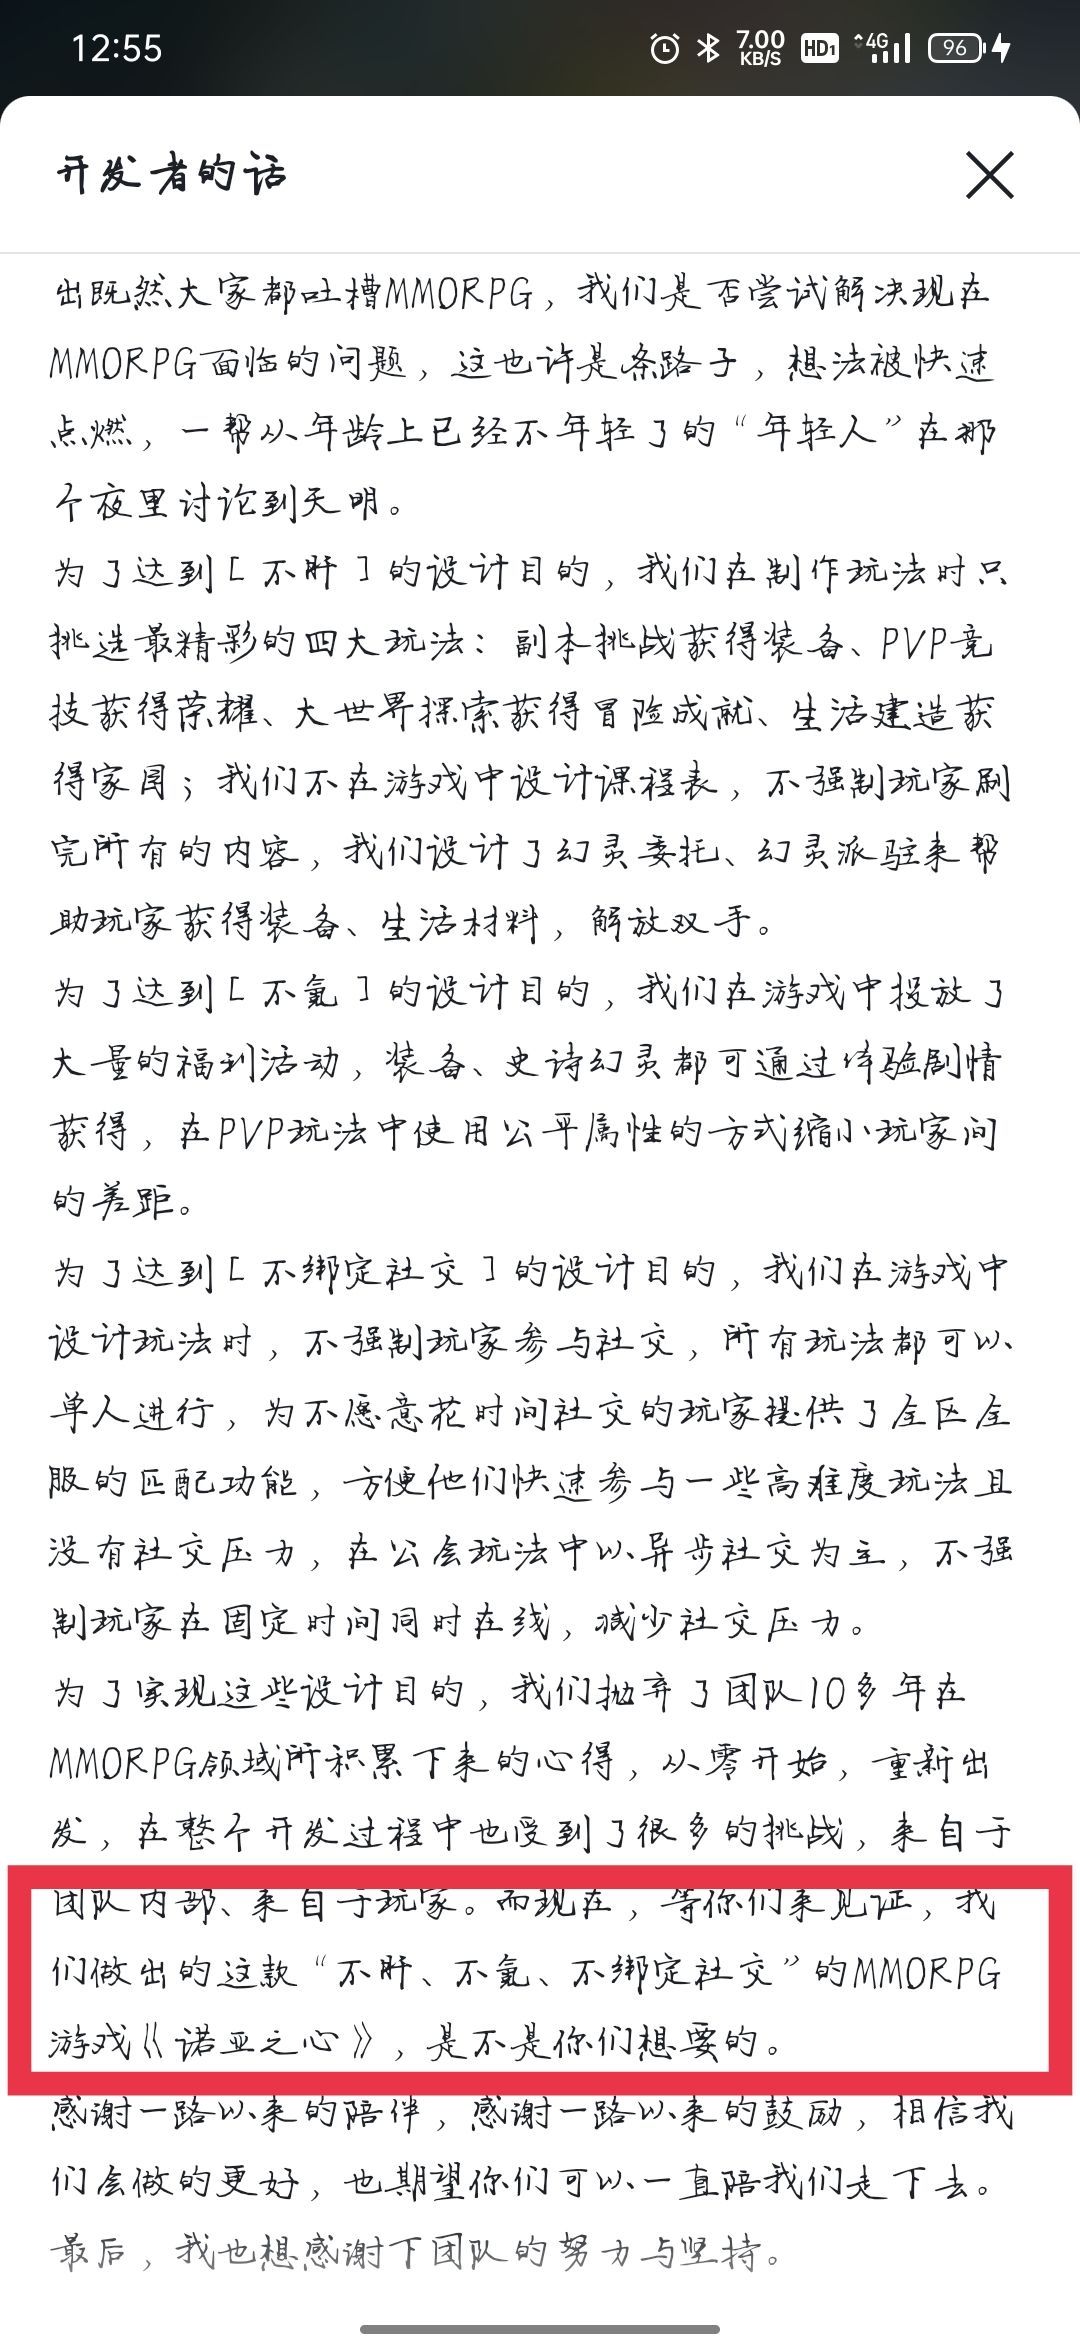 12:55
7.00 KB/S HD1 4G 96
开发者的话
出既然大家都吐槽MMORPG，我们是否尝试解决现在
MMORPG面临的问题，这也许是条路子，想法被快速
点燃，一帮从年龄上已经不年轻了的“年轻人”在那
个夜里讨论到天明。
为了达到[不肝]的设计目的，我们在制作玩法时只
挑选最精彩的四大玩法：副本挑战获得装备、PVP竞
技获得荣耀、大世界探索获得冒险成就、生活建造获
得家园；我们不在游戏中设计课程表，不强制玩家刷
完所有的内容，我们设计了幻灵委托、幻灵派驻来帮
助玩家获得装备、生活材料，解放双手。
为了达到[不氪]的设计目的，我们在游戏中投放了
大量的福利活动，装备、史诗幻灵都可通过体验剧情
获得，在PVP玩法中使用公平属性的方式缩小玩家间
的差距。
为了达到[不绑定社交]的设计目的，我们在游戏中
设计玩法时，不强制玩家参与社交，所有玩法都可以
单人进行，为不愿意花时间社交的玩家提供了全区全
服的匹配功能，方便他们快速参与一些高难度玩法且
没有社交压力，在公会玩法中以异步社交为主，不强
制玩家在固定时间同时在线，减少社交压力。
为了实现这些设计目的，我们抛弃了团队10多年在
MMORPG领域所积累下来的心得，从零开始，重新出
发，在整个开发过程中也受到了很多的挑战，来自于
团队内部、来自于玩家。而现在，等你们来见证，我
们做出的这款“不肝、不氪、不绑定社交”的MMORPG
游戏《诺亚之心》，是不是你们想要的。
感谢一路以来的陪伴，感谢一路以来的鼓励，相信我
们会做的更好，也期望你们可以一直陪我们走下去。
最后，我也想感谢下团队的努力与坚持。